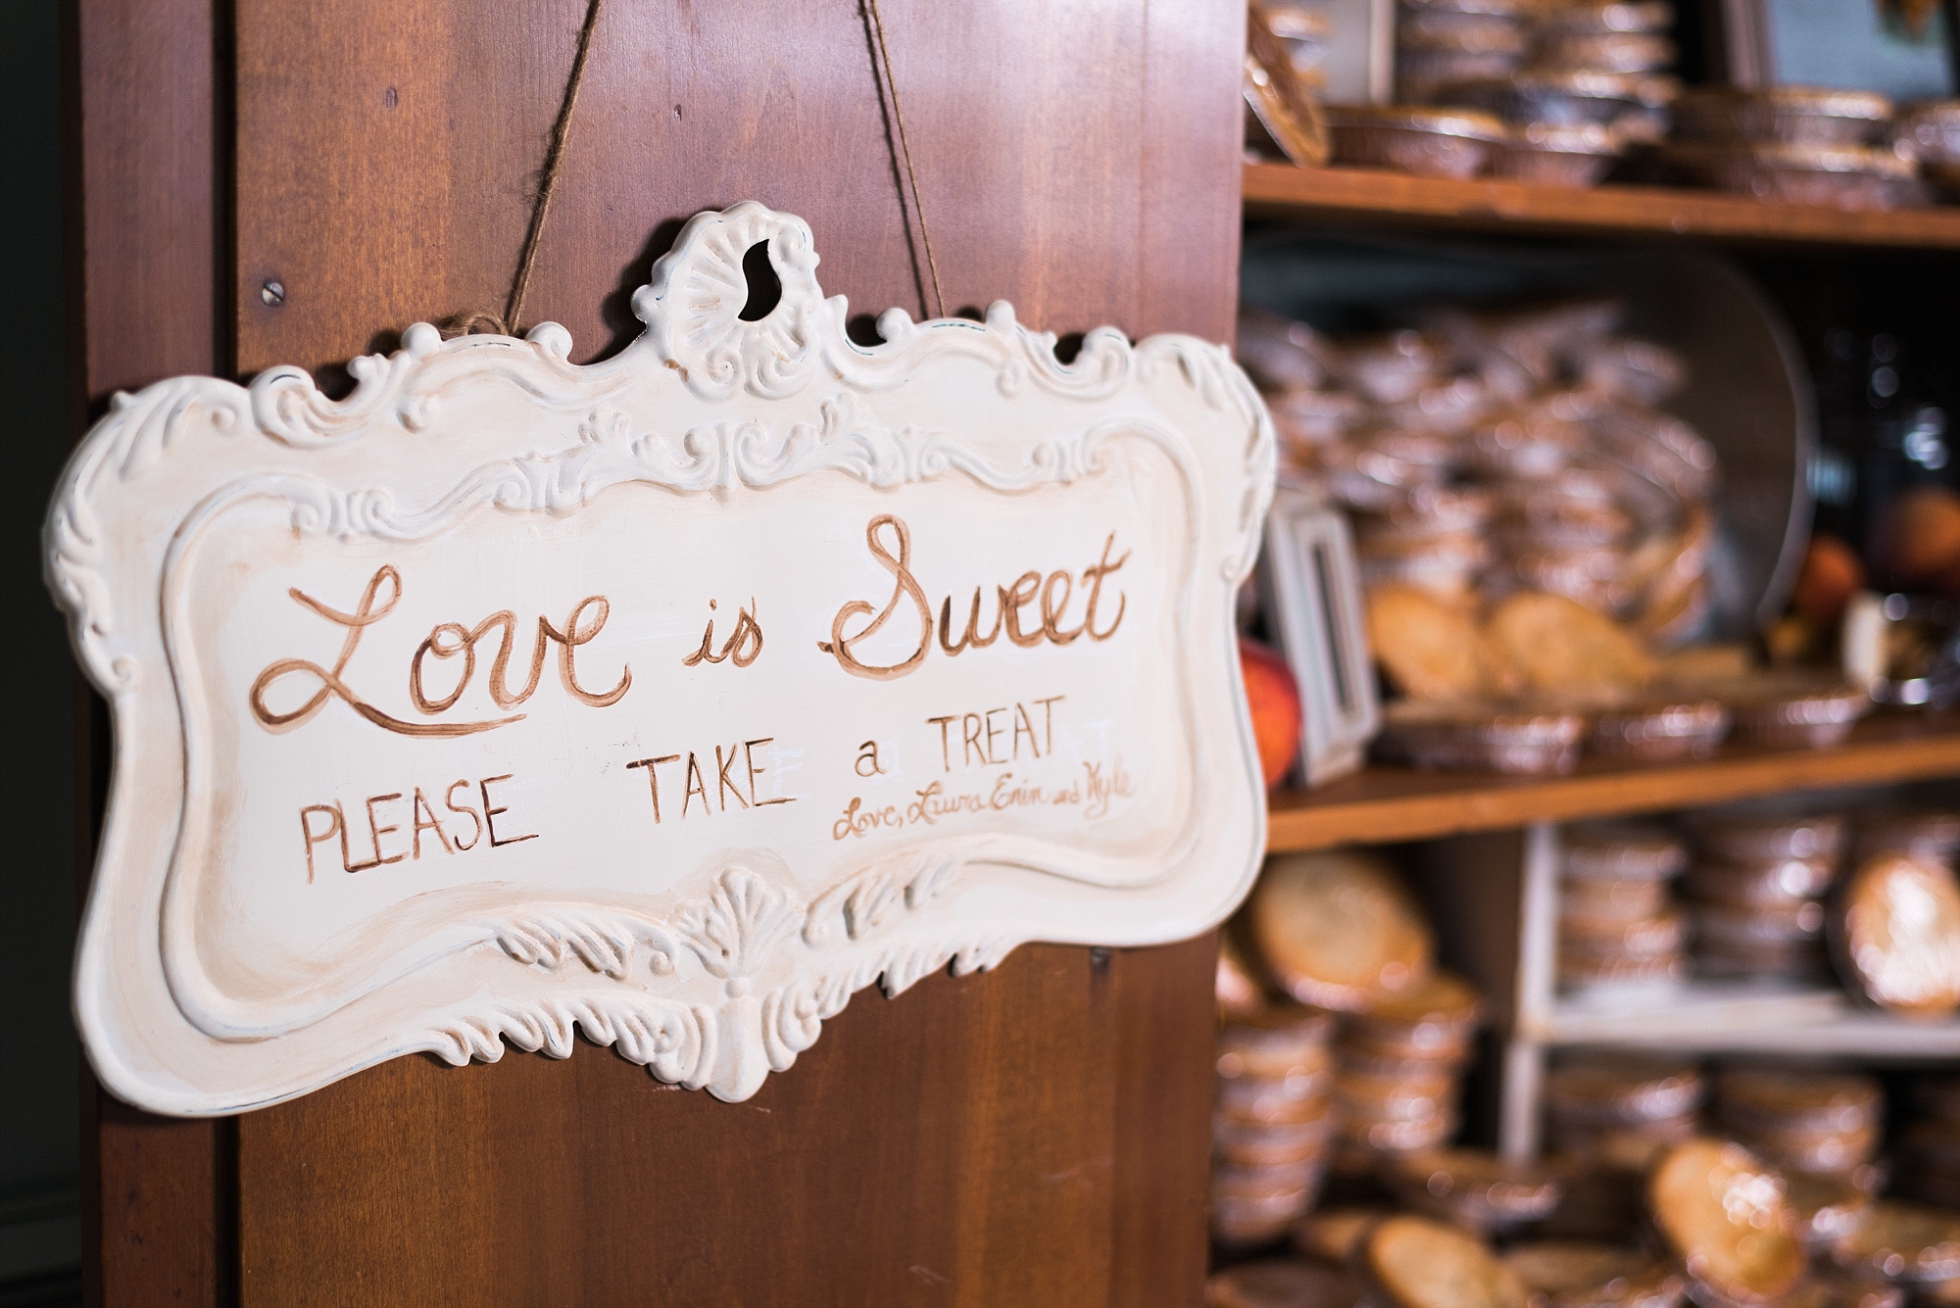 Love is Sweet
PLEASE TAKE a TREAT
Love, Laura Erin and Kyle